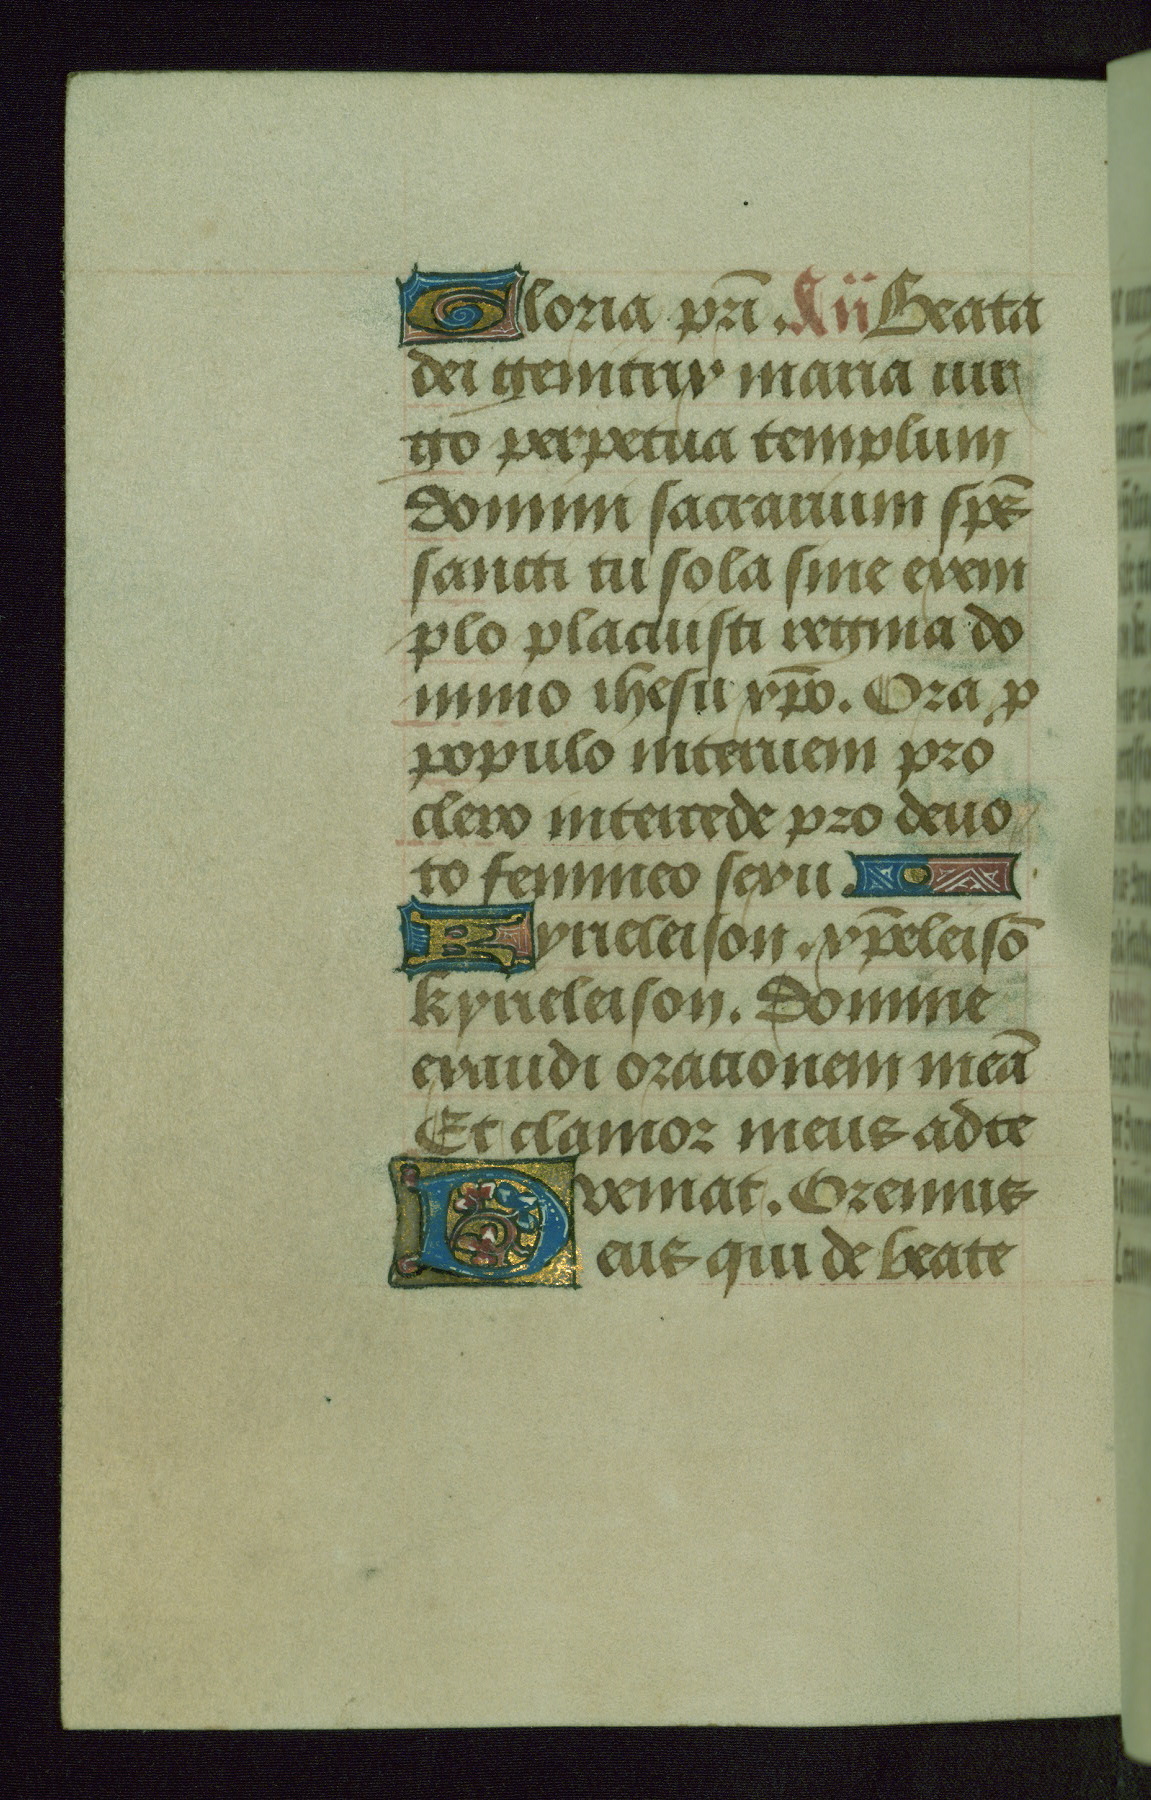 Gloria pr̄i . Añ Beata
dei genitrix maria uir
go perpetua templum
domini sacrarium sp̄s
sancti tu sola sine exem
plo placuisti regina do
mino ihesu xp̄o. Ora p
populo interueni pro
clero intercede pro deuo
to femineo sexu.
Kyrieleison. xp̄eleisō
kyrieleison. Domine
exaudi orationem meā
Et clamor meus ad te
ueniat. Oremus
Deus qui de beate